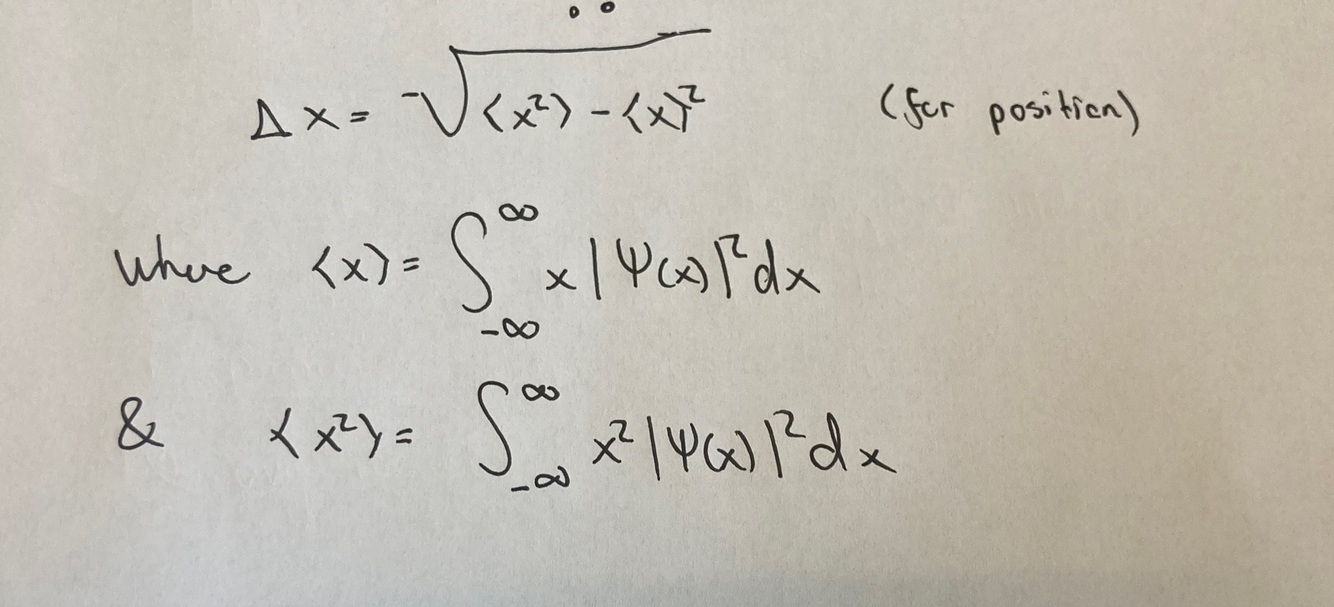 Δx = √⟨x²⟩ - ⟨x⟩² (for position)
where ⟨x⟩ = ∫_{-∞}^{∞} x|Ψ(x)|²dx
& ⟨x²⟩ = ∫_{-∞}^{∞} x²|Ψ(x)|²dx